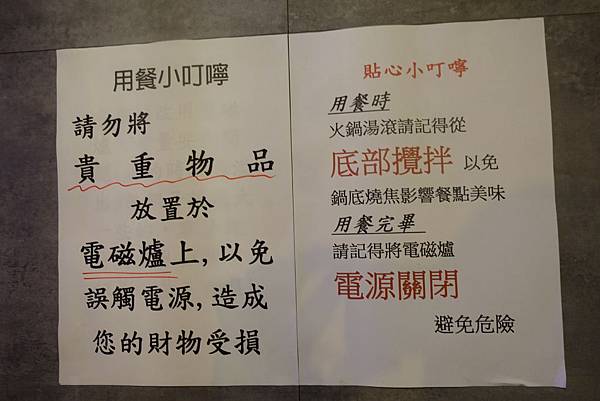 用餐小叮嚀
請勿將
貴重物品
放置於
電磁爐上,以免
誤觸電源,造成
您的財物受損
貼心小叮嚀
用餐時
火鍋湯滾請記得從
底部攪拌 以免
鍋底燒焦影響餐點美味
用餐完畢
請記得將電磁爐
電源關閉
避免危險